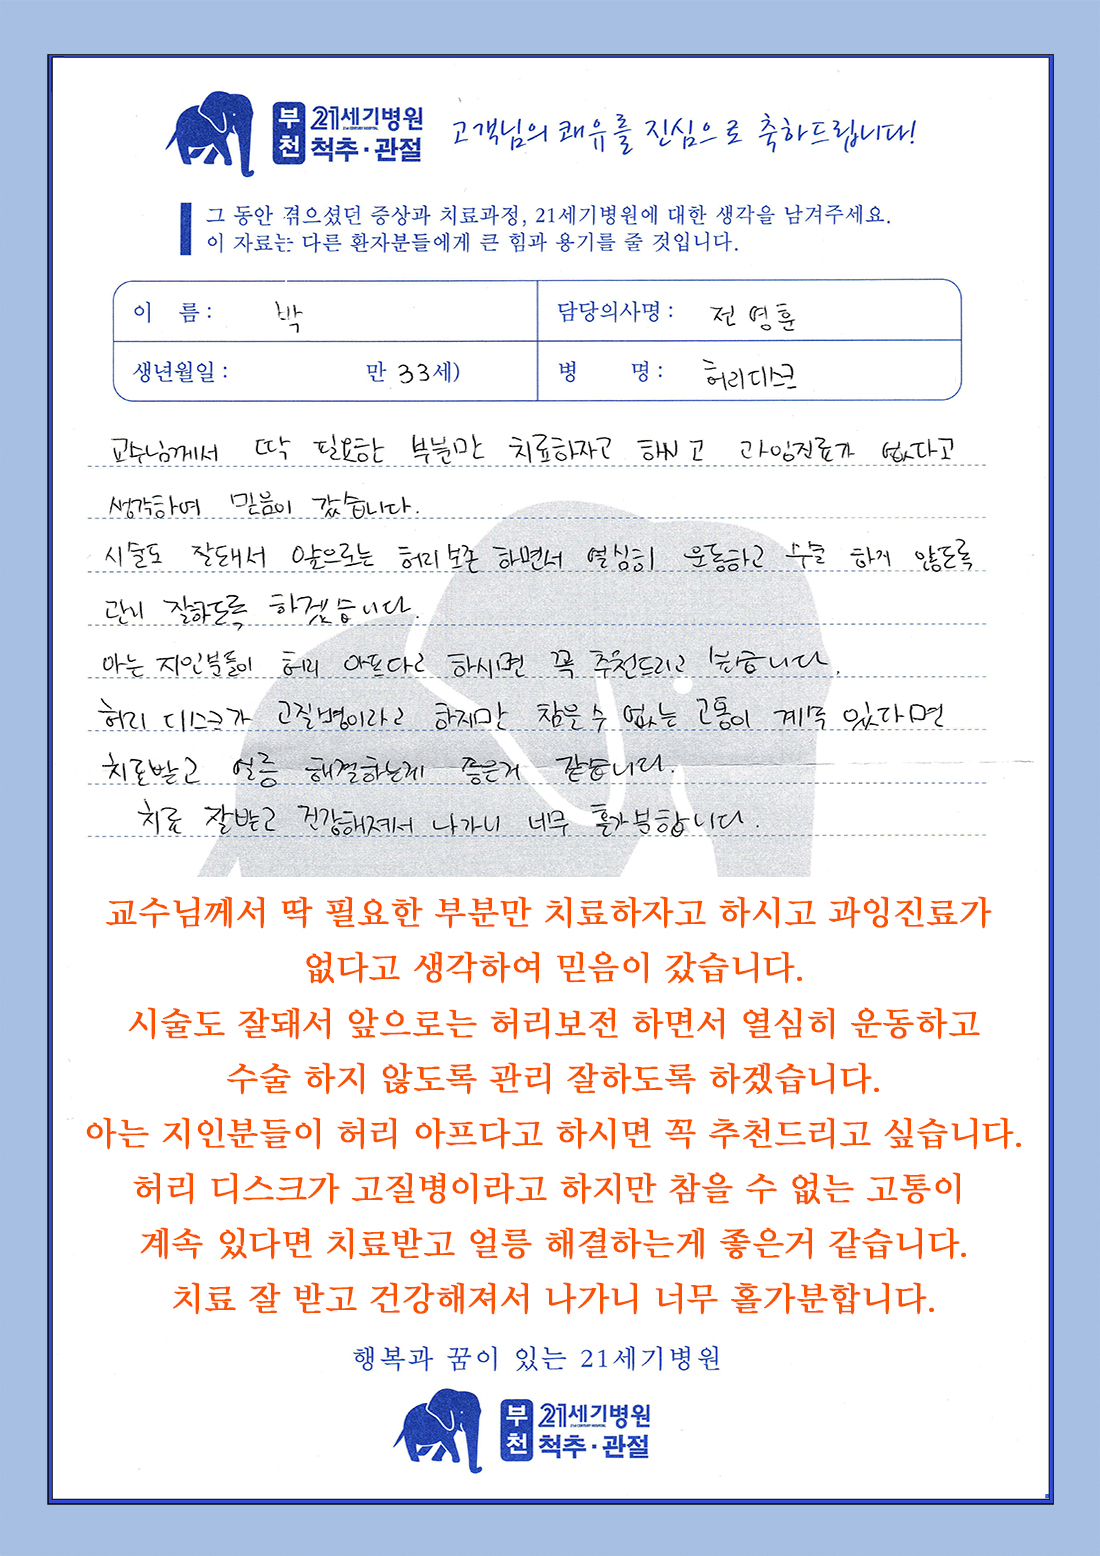 부천 21세기병원
21st CENTURY HOSPITAL
척추·관절
고객님의 쾌유를 진심으로 축하드립니다!
그 동안 겪으셨던 증상과 치료과정, 21세기병원에 대한 생각을 남겨주세요.
이 자료는 다른 환자분들에게 큰 힘과 용기를 줄 것입니다.
이 름 : 박 담당의사명 : 전영훈
생년월일 : 만 33세) 병 명 : 허리디스크
교수님께서 딱 필요한 부분만 치료하자고 하시고 과잉진료가 없다고
생각하여 믿음이 갔습니다.
시술도 잘돼서 앞으로는 허리보존 하면서 열심히 운동하고 수술 하지 않도록
관리 잘하도록 하겠습니다.
아는 지인분들이 허리 아프다고 하시면 꼭 추천드리고 싶습니다.
허리 디스크가 고질병이라고 하지만 참을 수 없는 고통이 계속 있다면
치료받고 얼릉 해결하는게 좋은거 같습니다.
치료 잘받고 건강해져서 나가니 너무 홀가분합니다.
교수님께서 딱 필요한 부분만 치료하자고 하시고 과잉진료가
없다고 생각하여 믿음이 갔습니다.
시술도 잘돼서 앞으로는 허리보전 하면서 열심히 운동하고
수술 하지 않도록 관리 잘하도록 하겠습니다.
아는 지인분들이 허리 아프다고 하시면 꼭 추천드리고 싶습니다.
허리 디스크가 고질병이라고 하지만 참을 수 없는 고통이
계속 있다면 치료받고 얼릉 해결하는게 좋은거 같습니다.
치료 잘 받고 건강해져서 나가니 너무 홀가분합니다.
행복과 꿈이 있는 21세기병원
부천 21세기병원
21st CENTURY HOSPITAL
척추·관절